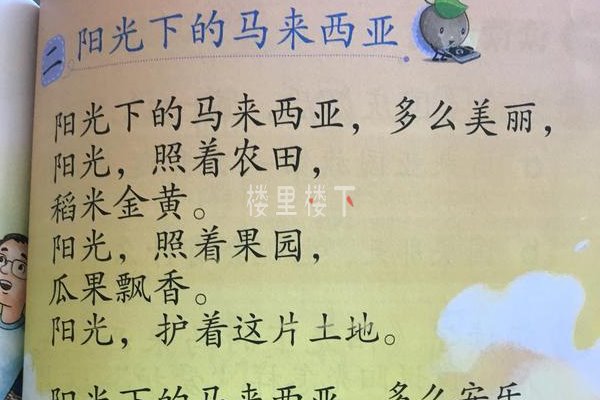 二
阳光下的马来西亚
阳光下的马来西亚，多么美丽，
阳光，照着农田，
稻米金黄。
楼里楼下
阳光，照着果园，
瓜果飘香。
阳光，护着这片土地。
阳光下的马来西亚，多么安乐